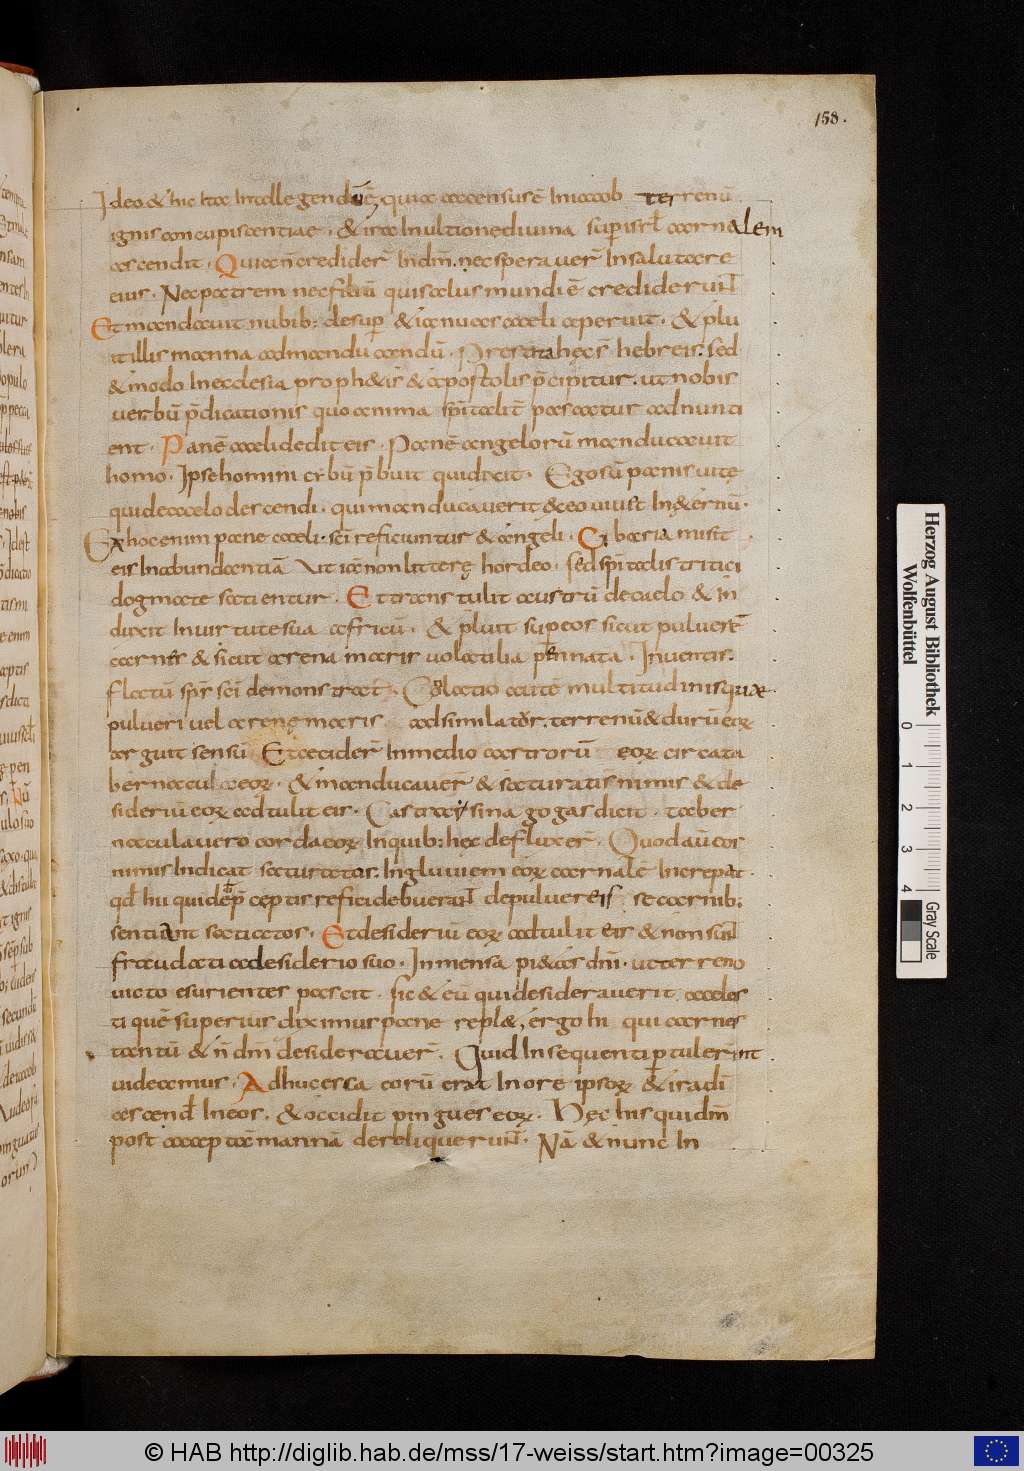 158.
Ideo & hic ita intellegendū ē, quia accensus ē in iacob terrenū
ignis concupiscentiae. & ira in ultione diuina sup isrl carnalem
ascendit. Quia n̄ credider̄ in dm̄. nec sperauer̄ in salutare
eius. Nec patrem nec filiū qui salus mundi ē crediderunt
Et mandauit nubib: desup & ianuas caeli aperuit. & plu
it illis manna ad manducandū. hebreis. sed
& modo in ecclesia proph&is & apostolis p̄cipitur. ut nobis
uerbū p̄dicationis quo anima sp̄italit̄ pascatur adnunti
ent. Panē caeli dedit eis. Panē angelorū manducauit
homo. Ipse homini p̄buit qui dicit. Ego sū panis uite
qui de caelo descendi. qui manducauerit & eo uiu& in &ernū.
Ex hoc enim pane caeli. sc̄i reficiuntur & angeli. Cibaria misit
eis in abundantiā Ut iā non littere hordeo. sed sp̄italis tritici
dogmate satientur. Et transtulit austrū de caelo & in
duxit in uirtute sua africū. & pluit sup eos sicut puluerē
carnes & sicut arena maris uolatilia pennata. Inuentis.
flatū sp̄s sc̄i demonstrat. multitudinis quae
pulueri uel arene maris adsimilator. terrenū & durū eoꝝ
arguit sensū Et cecider̄ in medio castrorū eoꝝ circa ta
bernacula eoꝝ. & manducauer̄ & saturati s nimis & de
sideriū eoꝝ adtulit eis. Castra synagogas dicit. taber
nacula uero corda eoꝝ in quib: hec defluxer̄. Quod aū
nimis indicat saturatos. Ingluuiem eoꝝ carnalē increpat.
qd̄ hii qui de p̄ceptis refici debuerant de puluere se carnib;
sentiant satiatos. Et desideriū eoꝝ adtulit eis & non sunt
fraudati a desiderio suo. Inmensa pi&as dn̄i. ut terreno
uicto esurientes pascit. sic & eū qui desiderauerit caeles
ti quē superius diximus pane repl&, ergo hi qui carnes
tantū & n̄ dm̄ desiderauer̄. Quid in sequenti ptulerint
uideamus. Adhuc esca eorū erat in ore ipsoꝝ & ira di
ascend in eos. & occidit pingues eoꝝ. Hec his qui dm̄
post acceptā mannā dereliquerunt. Nā & nunc in
Herzog August Bibliothek
Wolfenbüttel
0 1 2 3 4
Gray Scale
© HAB http://diglib.hab.de/mss/17-weiss/start.htm?image=00325